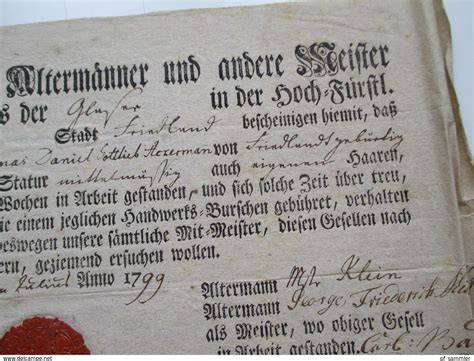 Altermänner und andere Meister
s der Glaser in der Hoch-Fürstl.
Stadt Friedland bescheinigen hiemit, daß
mas Daniel Gottlieb Ackerman von Friedland gebürtig
Statur mittelmässig auch eigenen Haaren,
Wochen in Arbeit gestanden, und sich solche Zeit über treu,
ie einem jeglichen Handwerks-Burschen gebühret, verhalten
deswegen unsere sämtliche Mit-Meister, diesen Gesellen nach
ern, geziemend ersuchen wollen.
Julius Anno 1799
Altermann Mstr Klein
Altermann George Friederich
als Meister, wo obiger Gesell
in Arbeit gestanden. Carl:
www.delcampe.net
af sammler